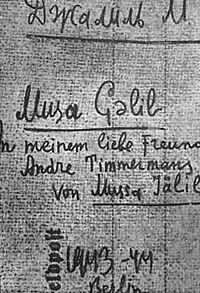 Джалиль М.
Musa Gəlil
In meinem liebe Freund
Andre Timmermans
Von Musa Jälil
eldpost
1943-44
Berlin